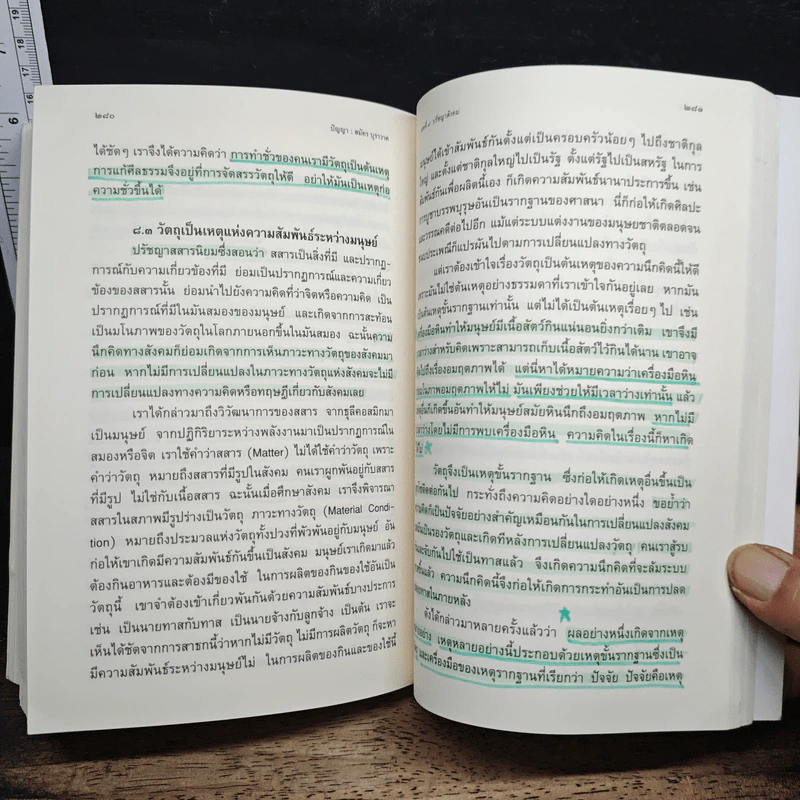 ๒๘๐
ปัญญา : สมัคร บุราวาศ
ได้ชัดๆ เราจึงได้ความคิดว่า การทำชั่วของคนเรามีวัตถุเป็นต้นเหตุ
การแก้ศีลธรรมจึงอยู่ที่การจัดสรรวัตถุให้ดี อย่าให้มันเป็นเหตุก่อ
ความชั่วขึ้นได้
๘.๓ วัตถุเป็นเหตุแห่งความสัมพันธ์ระหว่างมนุษย์
ปรัชญาสสารนิยมซึ่งสอนว่า สสารเป็นสิ่งที่มี และปรากฏ-
การณ์กับความเกี่ยวข้องที่มี ย่อมเป็นปรากฏการณ์และความเกี่ยว
ข้องของสสารนั้น ย่อมนำไปยังความคิดที่ว่าจิตหรือความคิด เป็น
ปรากฏการณ์ที่มีในมันสมองของมนุษย์ และเกิดจากการสะท้อน
เป็นมโนภาพของวัตถุในโลกภายนอกขึ้นในมันสมอง ฉะนั้นความ
นึกคิดทางสังคมก็ย่อมเกิดจากการเห็นภาวะทางวัตถุของสังคมมา
ก่อน หากไม่มีการเปลี่ยนแปลงในภาวะทางวัตถุแห่งสังคมจะไม่มี
การเปลี่ยนแปลงทางความคิดหรือทฤษฎีเกี่ยวกับสังคมเลย
เราได้กล่าวมาถึงวิวัฒนาการของสสาร จากธุลีคอสมิกมา
เป็นมนุษย์ จากปฏิกิริยาระหว่างพลังงานมาเป็นปรากฏการณ์ใน
สมองหรือจิต เราใช้คำว่าสสาร (Matter) ไม่ได้ใช้คำว่าวัตถุ เพราะ
คำว่าวัตถุ หมายถึงสสารที่มีรูปในสังคม คนเราผูกพันอยู่กับสสาร
ที่มีรูป ไม่ใช่กับเนื้อสสาร ฉะนั้นเมื่อศึกษาสังคม เราจึงพิจารณา
สสารในสภาพมีรูปร่างเป็นวัตถุ ภาวะทางวัตถุ (Material Condi-
tion) หมายถึงประมวลแห่งวัตถุทั้งปวงที่พัวพันอยู่กับมนุษย์ อัน
ก่อให้เขาเกิดมีความสัมพันธ์กันขึ้นเป็นสังคม มนุษย์เราเกิดมาแล้ว
ต้องกินอาหารและต้องมีของใช้ ในการผลิตของกินของใช้อันเป็น
วัตถุนี้ เขาจำต้องเข้าเกี่ยวพันกันด้วยความสัมพันธ์บางประการ
เช่น เป็นนายทาสกับทาส เป็นนายจ้างกับลูกจ้าง เป็นต้น เราจะ
เห็นได้ชัดจากการสาธกนี้ว่าหากไม่มีวัตถุ ไม่มีการผลิตวัตถุ ก็จะหา
มีความสัมพันธ์ระหว่างมนุษย์ไม่ ในการผลิตของกินและของใช้นี้
ปรัชญาสังคม
๒๘๑
มนุษย์ได้เข้าสัมพันธ์กันตั้งแต่เป็นครอบครัวน้อยๆ ไปถึงชาติกุล
ใหญ่ และตั้งแต่ชาติกุลใหญ่ไปเป็นรัฐ ตั้งแต่รัฐไปเป็นสหรัฐ ในการ
สัมพันธ์กันเพื่อผลิตนี้เอง ก็เกิดความสัมพันธ์นานาประการขึ้น เช่น
การบูชาบรรพบุรุษอันเป็นรากฐานของศาสนา นี่ก็ก่อให้เกิดศิลปะ
และวรรณคดีต่อไปอีก แม้แต่ระบบแต่งงานของมนุษยชาติตลอดจน
ประเพณีก็แปรผันไปตามการเปลี่ยนแปลงทางวัตถุ
แต่เราต้องเข้าใจเรื่องวัตถุเป็นต้นเหตุของความนึกคิดนี้ให้ดี
เพราะมันไม่ใช่ต้นเหตุอย่างธรรมดาที่เราเข้าใจกันอยู่เลย หากมัน
เป็นต้นเหตุขั้นรากฐานเท่านั้น แต่ไม่ได้เป็นต้นเหตุเรื่อยๆ ไป เช่น
เครื่องมือหินทำให้มนุษย์มีเนื้อสัตว์กินแน่นอนยิ่งกว่าเดิม เขาจึงมี
เวลาว่างสำหรับคิดเพราะสามารถเก็บเนื้อสัตว์ไว้กินได้นาน เขาอาจ
คิดไปถึงเรื่องอมฤตภาพได้ แต่นี่หาได้หมายความว่าเครื่องมือหิน
มันเพียงช่วยให้มีเวลาว่างเท่านั้น แล้ว
เกิดขึ้นอันทำให้มนุษย์สมัยหินนึกถึงอมฤตภาพ หากไม่มี
เวลาว่างโดยไม่มีการพบเครื่องมือหิน ความคิดในเรื่องนี้ก็หาเกิด
วัตถุจึงเป็นเหตุขั้นรากฐาน ซึ่งก่อให้เกิดเหตุอื่นขึ้นเป็น
ติดต่อกันไป กระทั่งถึงความคิดอย่างใดอย่างหนึ่ง ขอย้ำว่า
ความคิดก็เป็นปัจจัยอย่างสำคัญเหมือนกันในการเปลี่ยนแปลงสังคม
เป็นรองวัตถุและเกิดทีหลังการเปลี่ยนแปลงวัตถุ คนเราสู้รบ
และจับกันไปใช้เป็นทาสแล้ว จึงเกิดความนึกคิดที่จะล้มระบบ
ขึ้นแล้ว ความนึกคิดนี้จึงก่อให้เกิดการกระทำอันเป็นการปลด
ทาสในภายหลัง
ดังได้กล่าวมาหลายครั้งแล้วว่า ผลอย่างหนึ่งเกิดจากเหตุ
เหตุหลายอย่างนี้ประกอบด้วยเหตุขั้นรากฐานซึ่งเป็น
และเครื่องมือของเหตุรากฐานที่เรียกว่า ปัจจัย ปัจจัยคือเหตุ